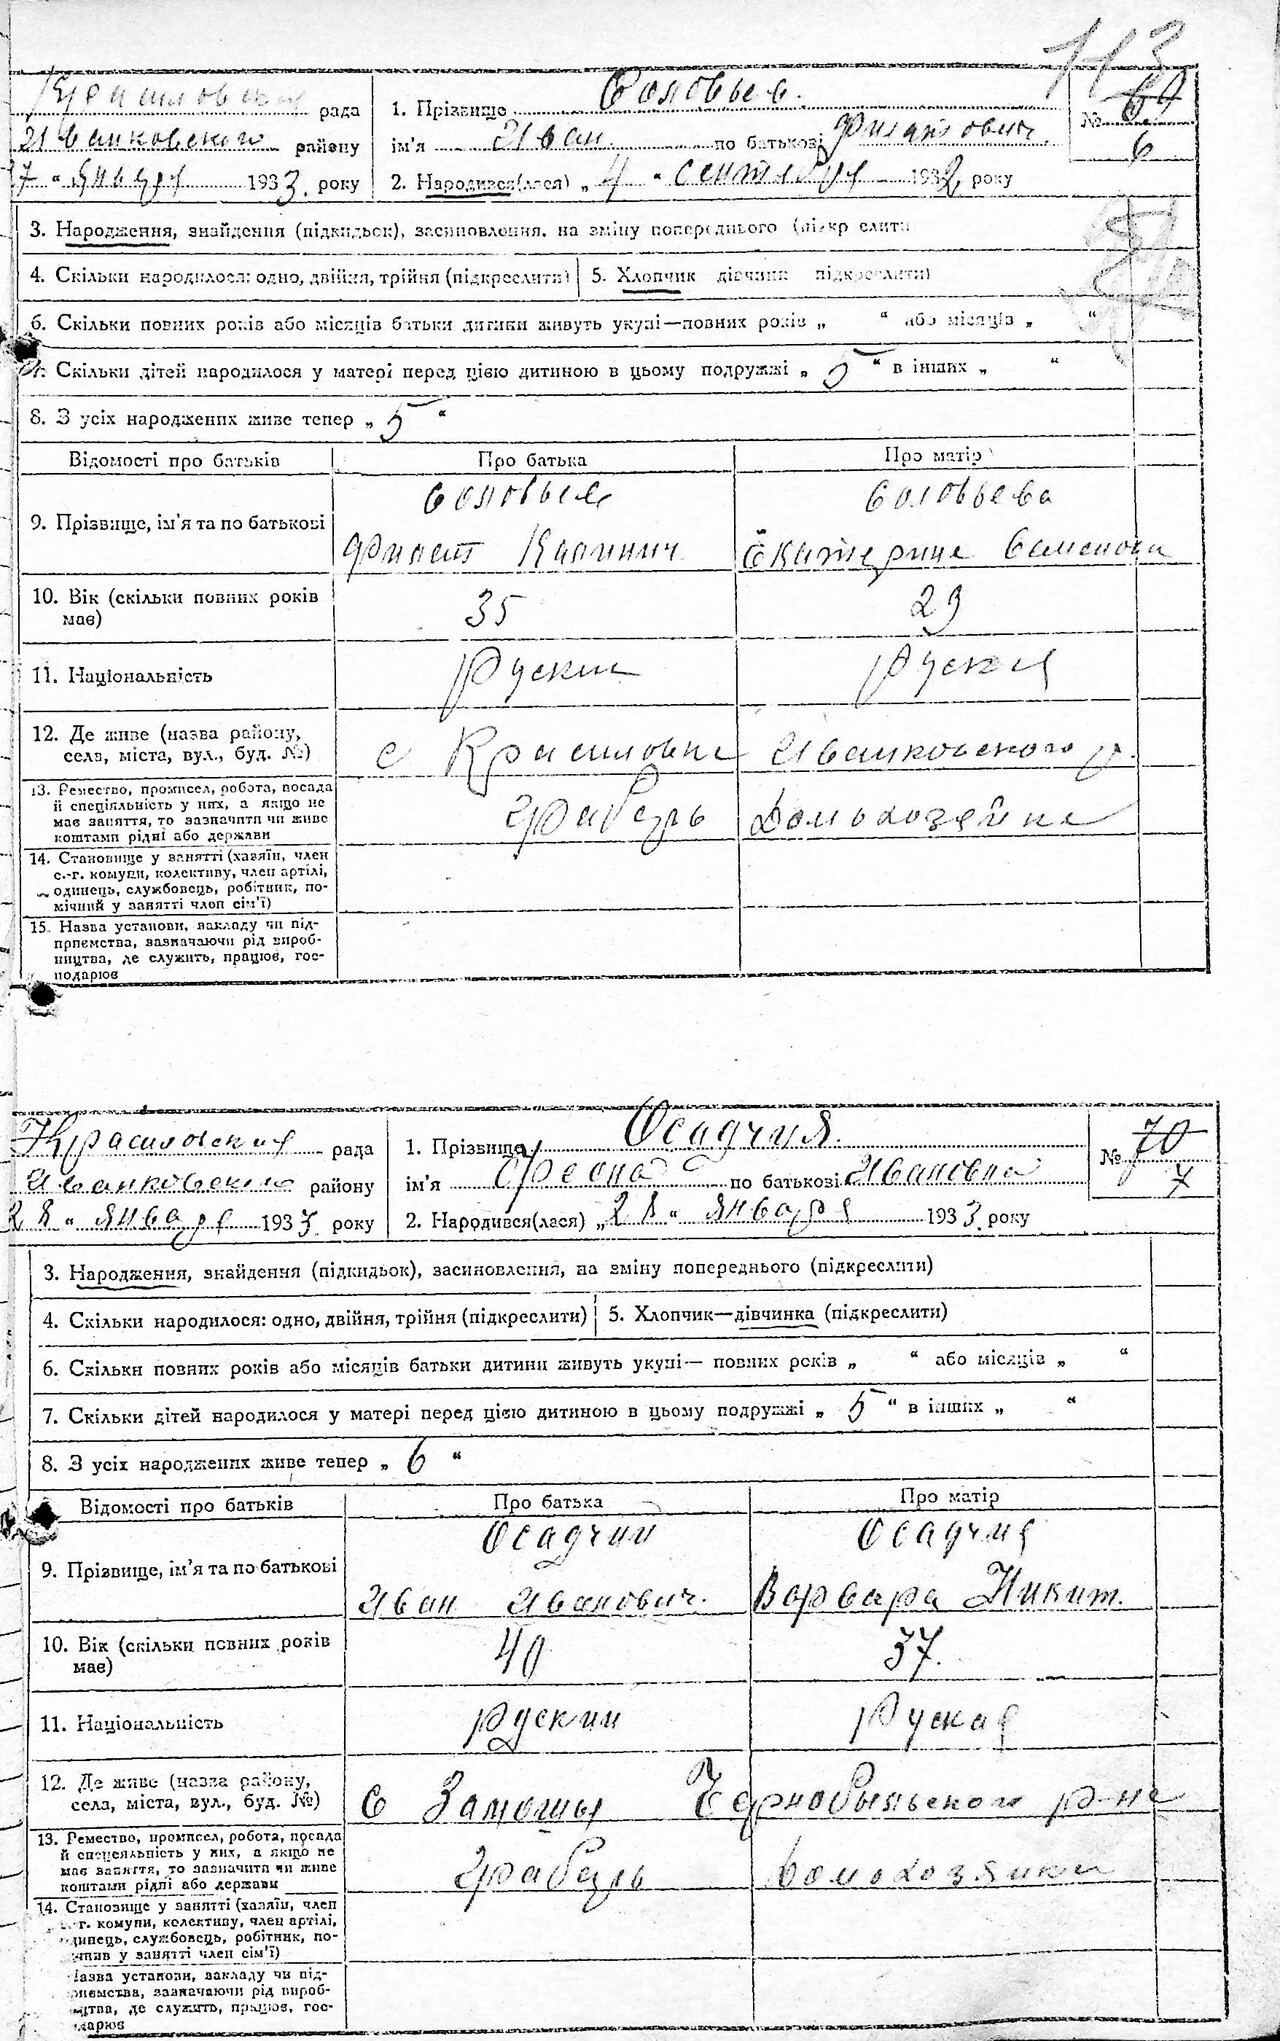 113
Красиловская рада
Иванковского району
17 " Января 1933. року
1. Прізвище Соловьев.
ім'я Иван по батькові Филатович
2. Народився(лася) „ 4 " сентября 1932 року
№ 69
6
3. Народження, знайдення (підкидьок), засиновлення, на зміну попереднього
4. Скільки народилося: одно, двійня, трійня (підкреслити)
5. Хлопчик дівчинк підкреслити)
6. Скільки повних років або місяців батьки дитини живуть укупі—повних років „ " або місяців „ "
7. Скільки дітей народилося у матері перед цією дитиною в цьому подружжі „ 5 " в інших „ "
8. З усіх народжених живе тепер „ 5 "
Відомості про батьків Про батька Про матір
Соловьев Соловьева
9. Прізвище, ім'я та по батькові
Филат Калинич Екатерина Семенова
10. Вік (скільки повних років має) 35 29
11. Національність Руский Руская
12. Де живе (назва району, села, міста, вул., буд. №) с Красиловка Иванковского р.
13. Ремество, промисел, робота, посада
й спеціяльність у них, а якщо не
має заняття, то зазначити чи живе
коштами рідні або держави
Грабарь Домохозяйка
14. Становище у занятті (хазяїн, член
с.-г. комуни, колективу, член артілі,
одинець, службовець, робітник, по-
мічний у занятті член сім'ї)
15. Назва установи, закладу чи під-
приємства, зазначаючи рід вироб-
ництва, де служить, працює, гос-
подарює
Красиловская рада
Иванковского району
28 " января 1933. року
1. Прізвище Осадчия.
ім'я Фесна по батькові Ивановна
2. Народився(лася) „ 28 " января 1933. року
№ 70
7
3. Народження, знайдення (підкидьок), засиновлення, на зміну попереднього (підкреслити)
4. Скільки народилося: одно, двійня, трійня (підкреслити)
5. Хлопчик—дівчинка (підкреслити)
6. Скільки повних років або місяців батьки дитини живуть укупі— повних років „ " або місяців „ "
7. Скільки дітей народилося у матері перед цією дитиною в цьому подружжі „ 5 " в інших „ "
8. З усіх народжених живе тепер „ 6 "
Відомості про батьків Про батька Про матір
Осадчий Осадчия
9. Прізвище, ім'я та по батькові
Иван Иванович. Варвара Никит.
10. Вік (скільки повних років має) 40 37.
11. Національність руский Руская
12. Де живе (назва району, села, міста, вул., буд. №) с Замошы Чернобыльского р-на
13. Ремество, промисел, робота, посада
й спецеяльність у них, а якщо не
має заняття, то зазначити чи живе
коштами рідні або держави
Грабарь домохозяйки
14. Становище у занятті (хазяїн, член
-г. комуни, колективу, член артілі,
динець, службовець, робітник, по-
член сім'ї)
Назва установи, закладу чи під-
приємства, зазначаючи рід вироб-
цтва, де служить, працює, гос-
дарює